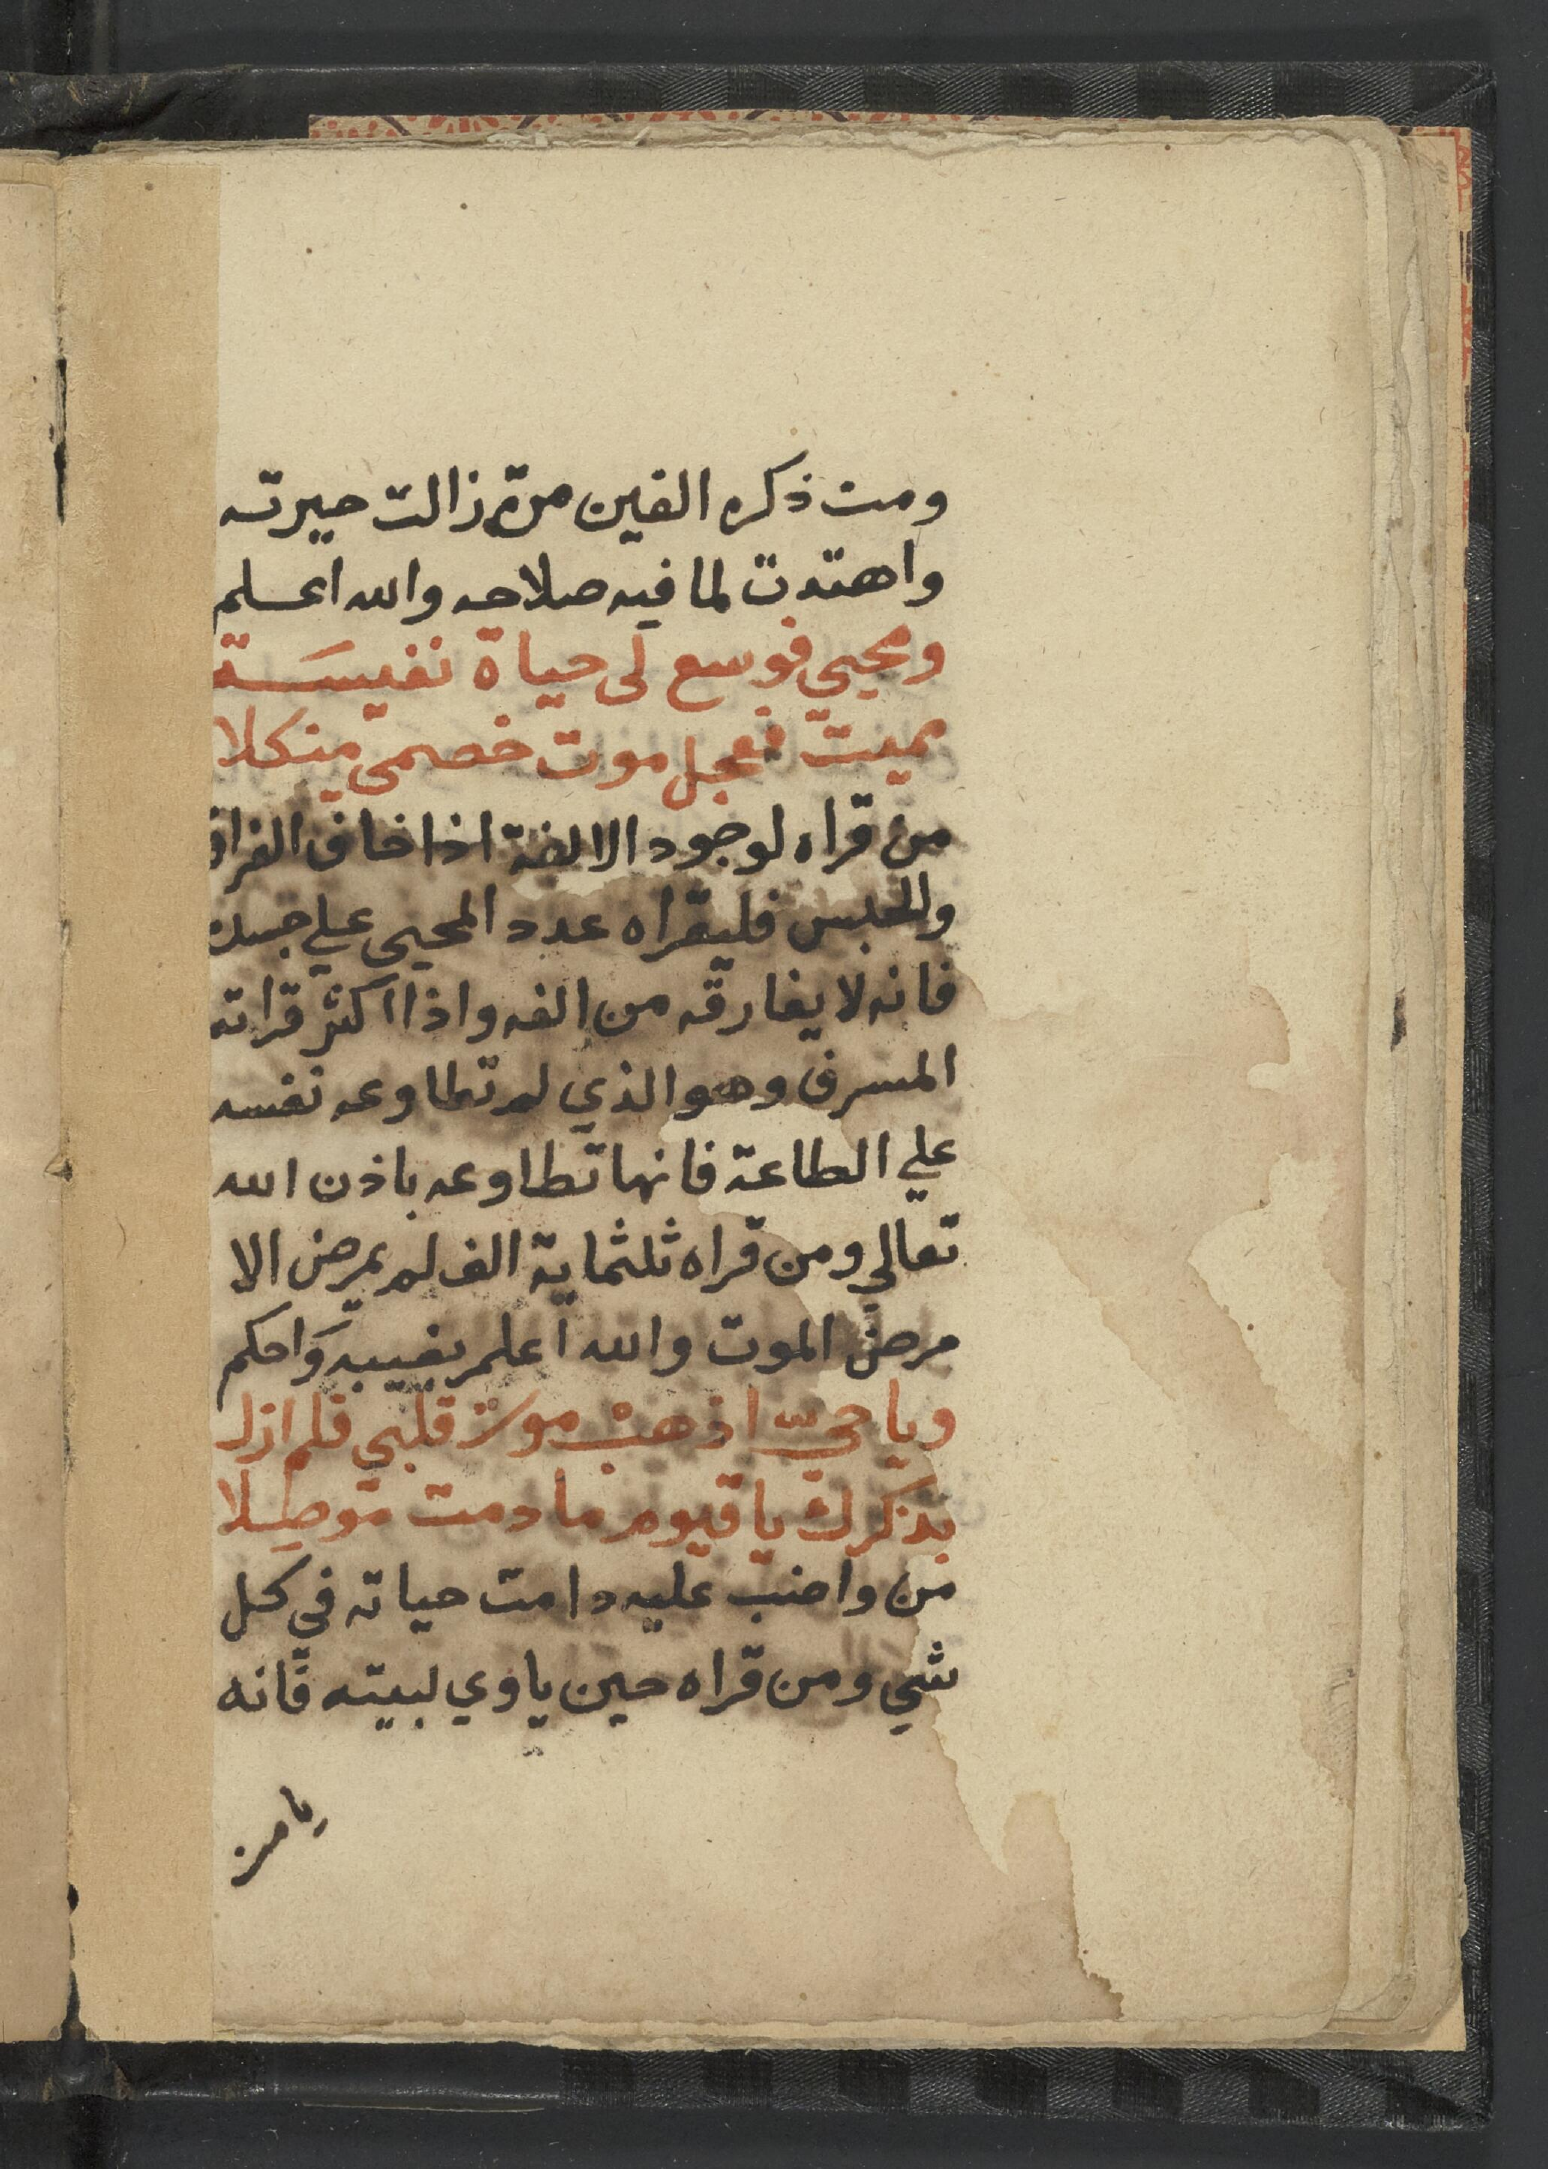 ومن ذكره الفين مرة زالت حيرته
واهتدت لما فيه صلاحه والله اعلم
ومحيي فوسع لى حياة نفيسة
مميت فعجل موت خصمى منكلا
من قراه لوجود الالفة اذا خاف الفراق
والحبس فليقراه عدد المحيى علي جسده
فانه لا يفارقه من الفه واذا اكثر قراته
المسرف وهو الذي لم تطاوعه نفسه
علي الطاعة فانها تطاوعه باذن الله
تعالي ومن قراه ثلثماية الف لم يمرض الا
مرض الموت والله اعلم بغيبه واحكم
ويا حيّ اذهب موت قلبي فلم ازل
بذكرك يا قيوم ما دمت موصلا
من واضب عليه دامت حياته في كل
شي ومن قراه حين ياوي لبيته فانه
يامن